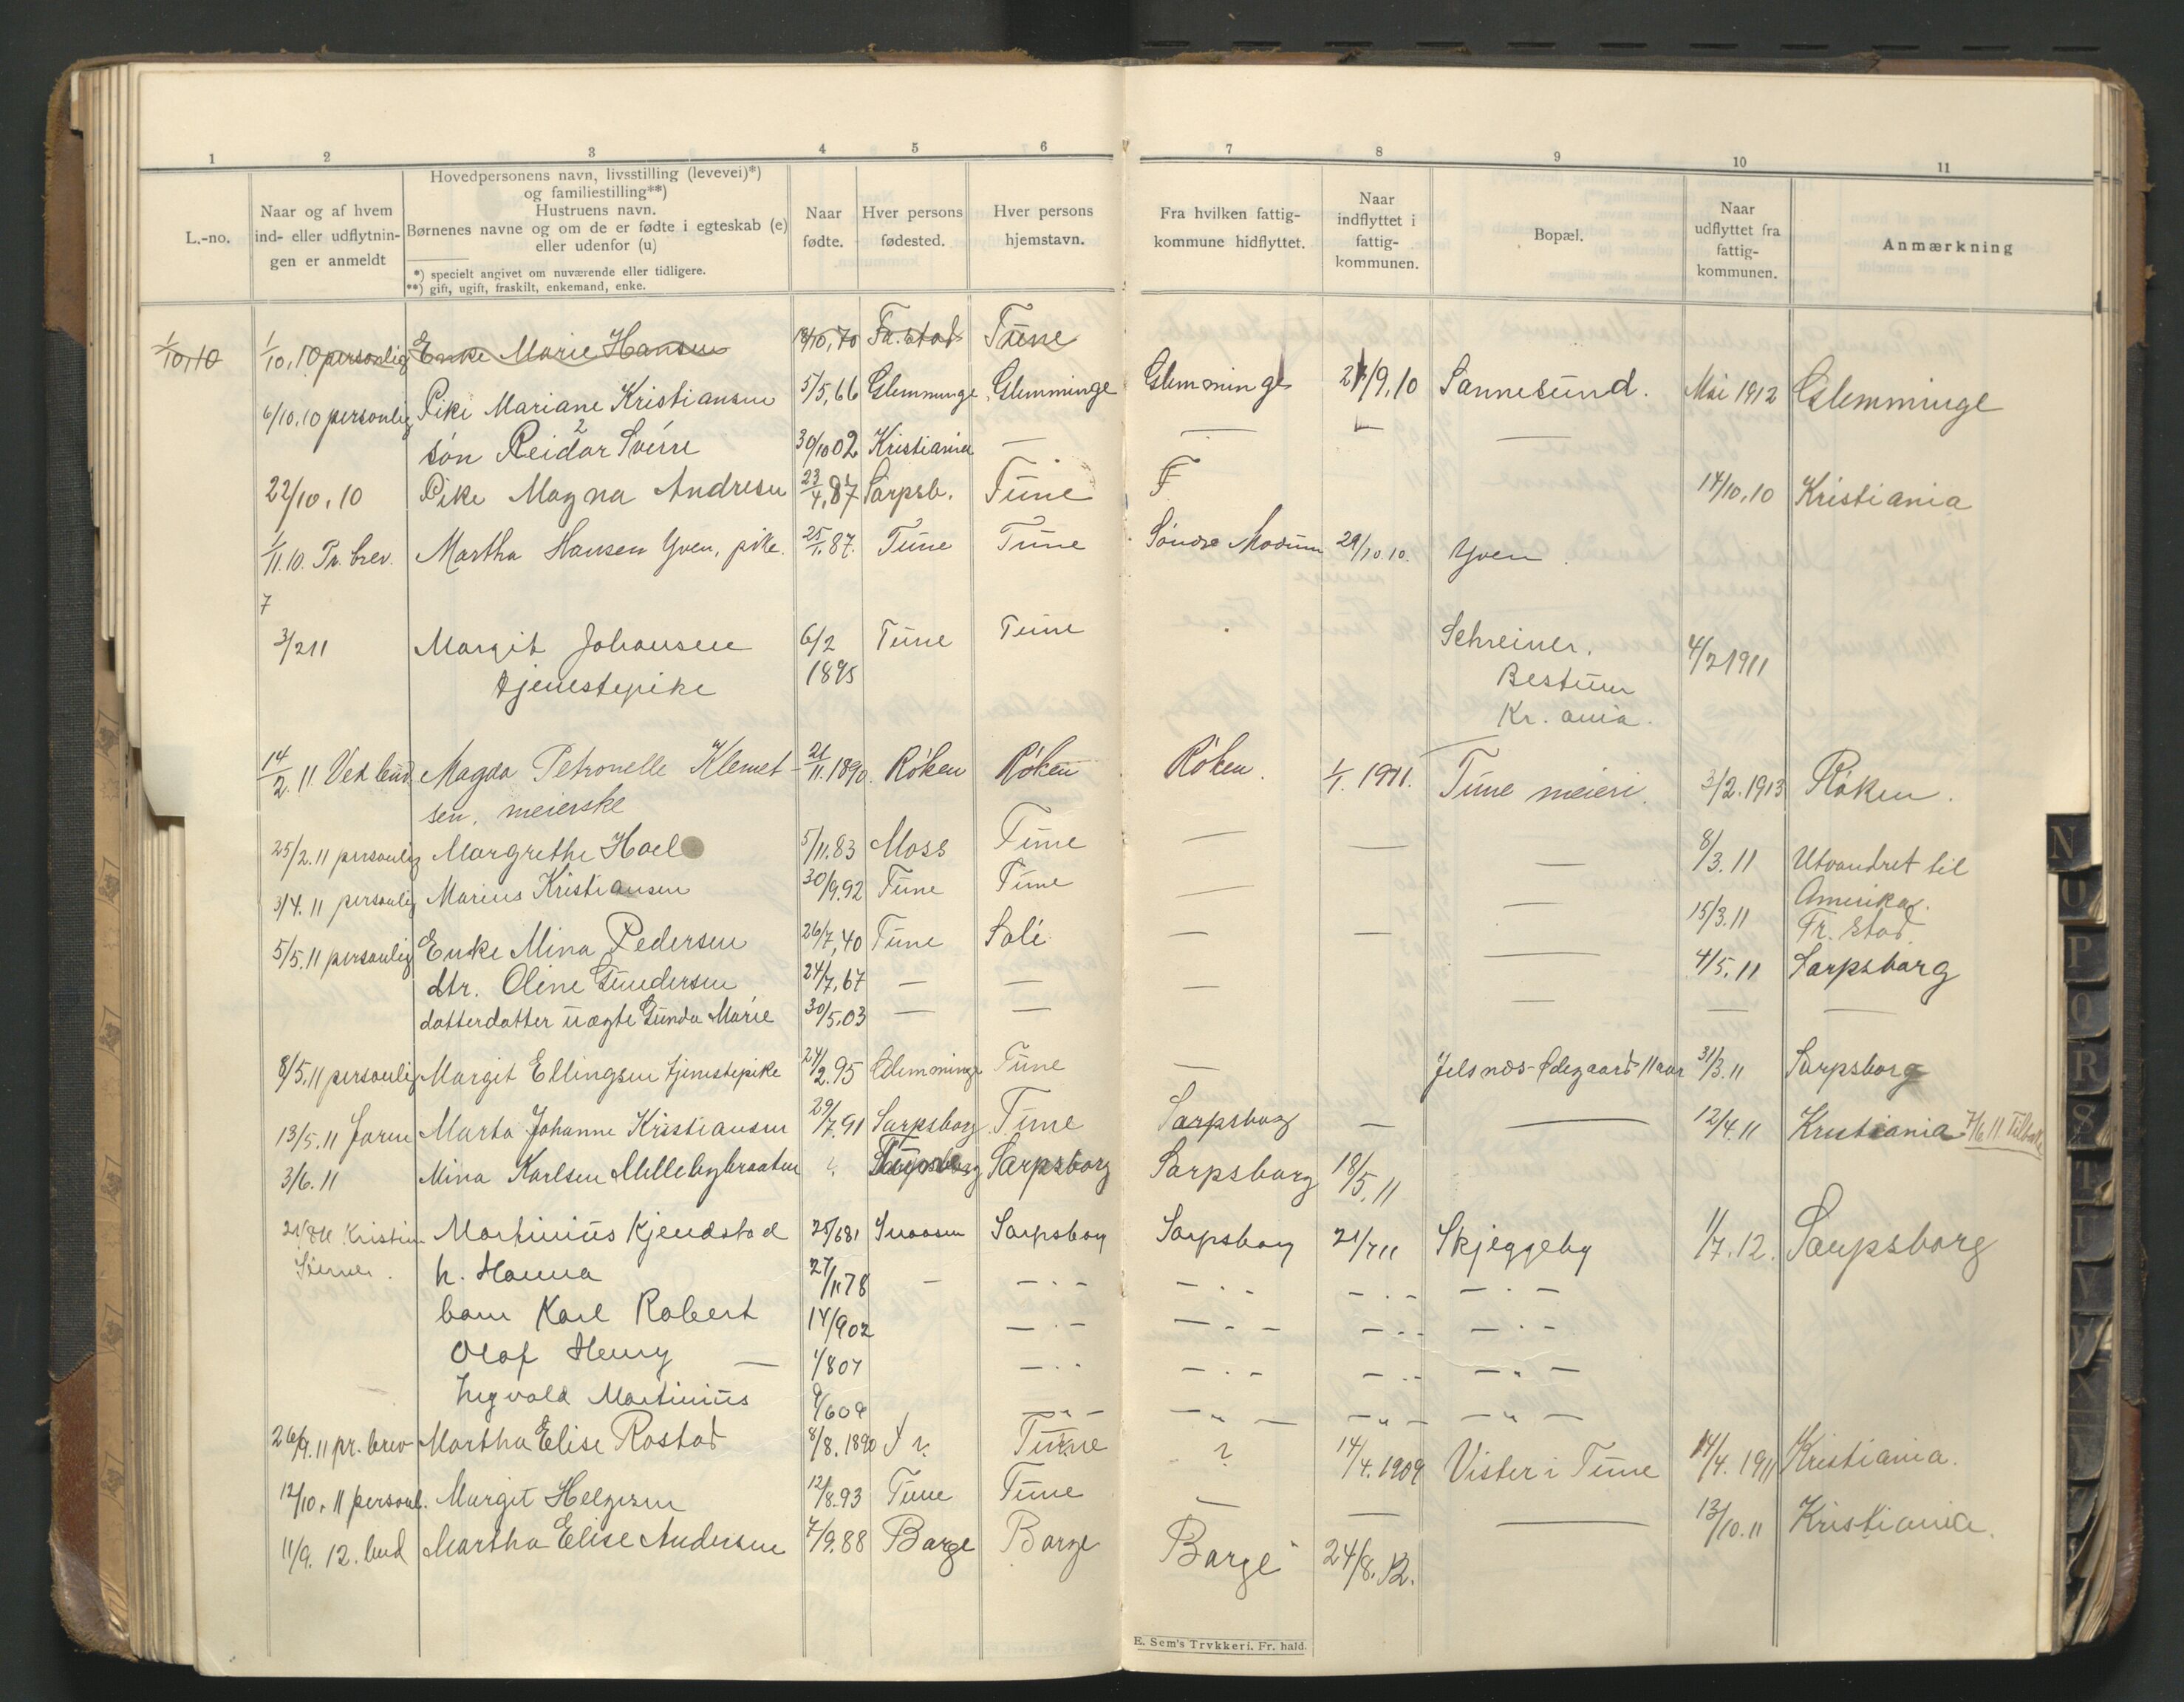 1 2 3 4 5 6 7 8 9 10 11
L.-no.
Naar og af hvem
ind- eller udflytnin-
gen er anmeldt
Hovedpersonens navn, livsstilling (levevei)*)
og familiestilling**)
Hustruens navn.
Børnenes navne og om de er fødte i egteskab (e)
eller udenfor (u)
*) specielt angivet om nuværende eller tidligere.
**) gift, ugift, fraskilt, enkemand, enke.
Naar
fødte.
Hver persons
fødested.
Hver persons
hjemstavn.
Fra hvilken fattig-
kommune hidflyttet.
Naar
indflyttet i
fattig-
kommunen.
Bopæl.
Naar
udflyttet fra
fattig-
kommunen.
Anmærkning
1/10,10 1/10,10 personlig Enke Marie Hansen 18/10,70 Fr. stad Tune
6/10.10 personlig Pike Mariane Kristiansen 5/5,66 Glemminge Glemminge Glemminge 21/9,10 Sannesund. Mai 1912 Glemminge
søn Reidar Sverre 30/10 02 Kristiania — — — —
22/10.10 Pike Magna Andresen 23/4,87 Sarpsb. Tune F 14/10,10 Kristiania
1/11.10. Pr. brev. Martha Hansen Yven, pike. 25/1.87. Tune Tune Søndre Modum 29/10.10. Yven.
7
3/2 11 Margit Johansen 6/2 Tune Tune Schreiner, 4/2 1911
tjenestepike 1895 Bestum
Kr. ania.
14/2.11 Ved bud. Magda Petronelle Klemet- 21/11.1890. Røken Røken Røken. 1/1.1911. Tune meieri. 3/2.1913 Røken.
sen, meierske
25/2.11 personlig Margrethe Hoel 5/11.83 Moss Tune — — — 8/3.11 Utvandret til
Amerika.
3/4.11 personlig Marius Kristiansen 30/9.92 Tune Tune — — 15/3.11 Fr. stad.
5/5.11 personlig Enke Mina Pedersen 26/7,40 Tune Soli — — — 4/5.11 Sarpsborg
dtr. Oline Gundersen 24/7,67 — — —
datterdatter uægte Gunda Marie 30/5.03 — — — — —
8/5.11 personlig Margit Ellingsen tjenestepike 24/2.95 Glemminge Tune — Jelsnes-Ødegaard 11 aar 31/3.11 Sarpsborg
13/5.11 Marta Johanne Kristiansen 29/7.91 Sarpsborg Tune Sarpsborg — — 12/4.11 Kristiania 7/6 11 Tilbake
3/6.11 Mina Karlsen Millebybraaten ? Tune Sarpsborg Sarpsborg 18/5.11
Kristian Martinius Kjendstad 25/6 81 Snaasen Sarpsborg Sarpsborg 21/7 11 Skjeggeby 1/7.12. Sarpsborg
h. Hanna 27/11 78 — — . — — . - — . — — . —
barn Karl Robert 14/9 02 — . — — . - — . - — . —
Olaf Henry — 1/8 07 — . . — . - — . . — . —
Ingvald Martinius 9/6 09 — " — — " — — " — — " —
26/9.11 pr. brev Martha Elise Rostad 8/8.1890 ? Tune ? 14/4.1909 Vister i Tune 14/4.1911 Kristiania.
12/10.11 personl. Margit Helgesen 12/8.93 Tune Tune — — — 13/10.11 Kristiania.
11/9.12. bud Martha Elise Andersen 7/9.88 Borge Borge Borge 24/8.12.
E. Sem's Trykkeri. Fr. hald.
N
O
P
Q
R
S
T
U
V
X
Y